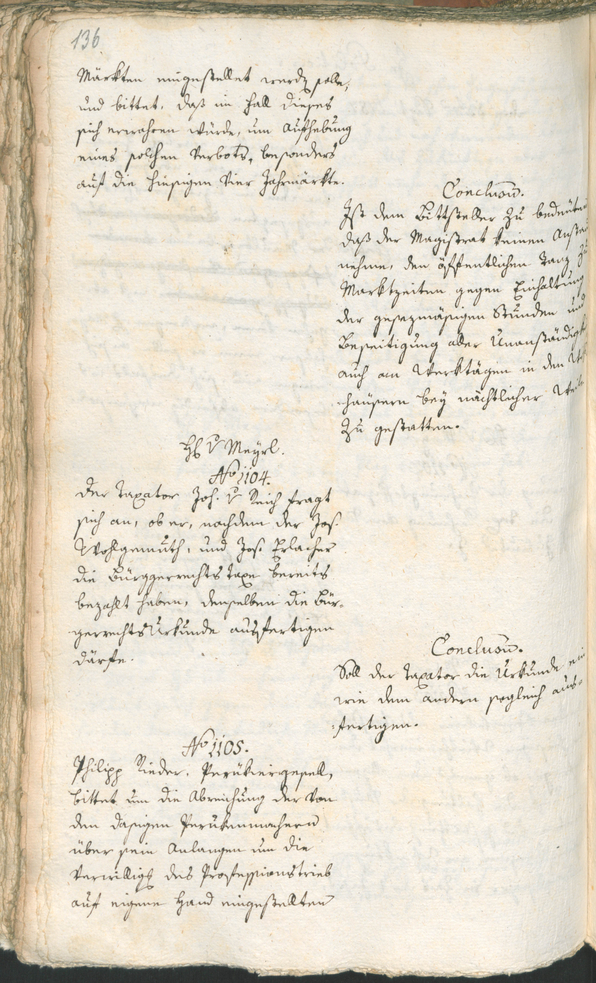 136
Märkten eingestellet werden solle,
und bittet, daß im Fall dieses
sich erwahren würde, um Aufhebung
eines solchen Verbots, besonders
auf die hiesigen Vier Jahrmärkte.
Conclusũ.
Ist dem Bittsteller zu bedeuten
daß der Magistrat keinen Anstand
nehme, den öffentlichen Tanz zu
Marktzeiten gegen Einhaltung
der gesezmäßigen Stunden und
Beseitigung aller Unanständigkeit
auch an Werktägen in den
häusern bey nächtlicher Weile
zu gestatten.
H v Meyrl.
No 1104.
Der Taxator Joh. v Reich fragt
sich an, ob er, nachdem der Jos.
Wohlgemuth, und Jos. Erlacher
die Bürggerrechts Taxe bereits
bezahlt haben, denselben die Bür-
gerrechts Urkunde ausfertigen
därfe.
Conclusũ.
Soll der Taxator die Urkunde ein
wie dem andern sogleich aus-
fertigen.
No 1105.
Philipp Rieder. Perükiergesell,
bittet um die Abreichung der von
den dasigen Perukenmachern
über sein Anlangen um die
Verwilligg des Professionstrieb
auf eigene Hand eingestellten